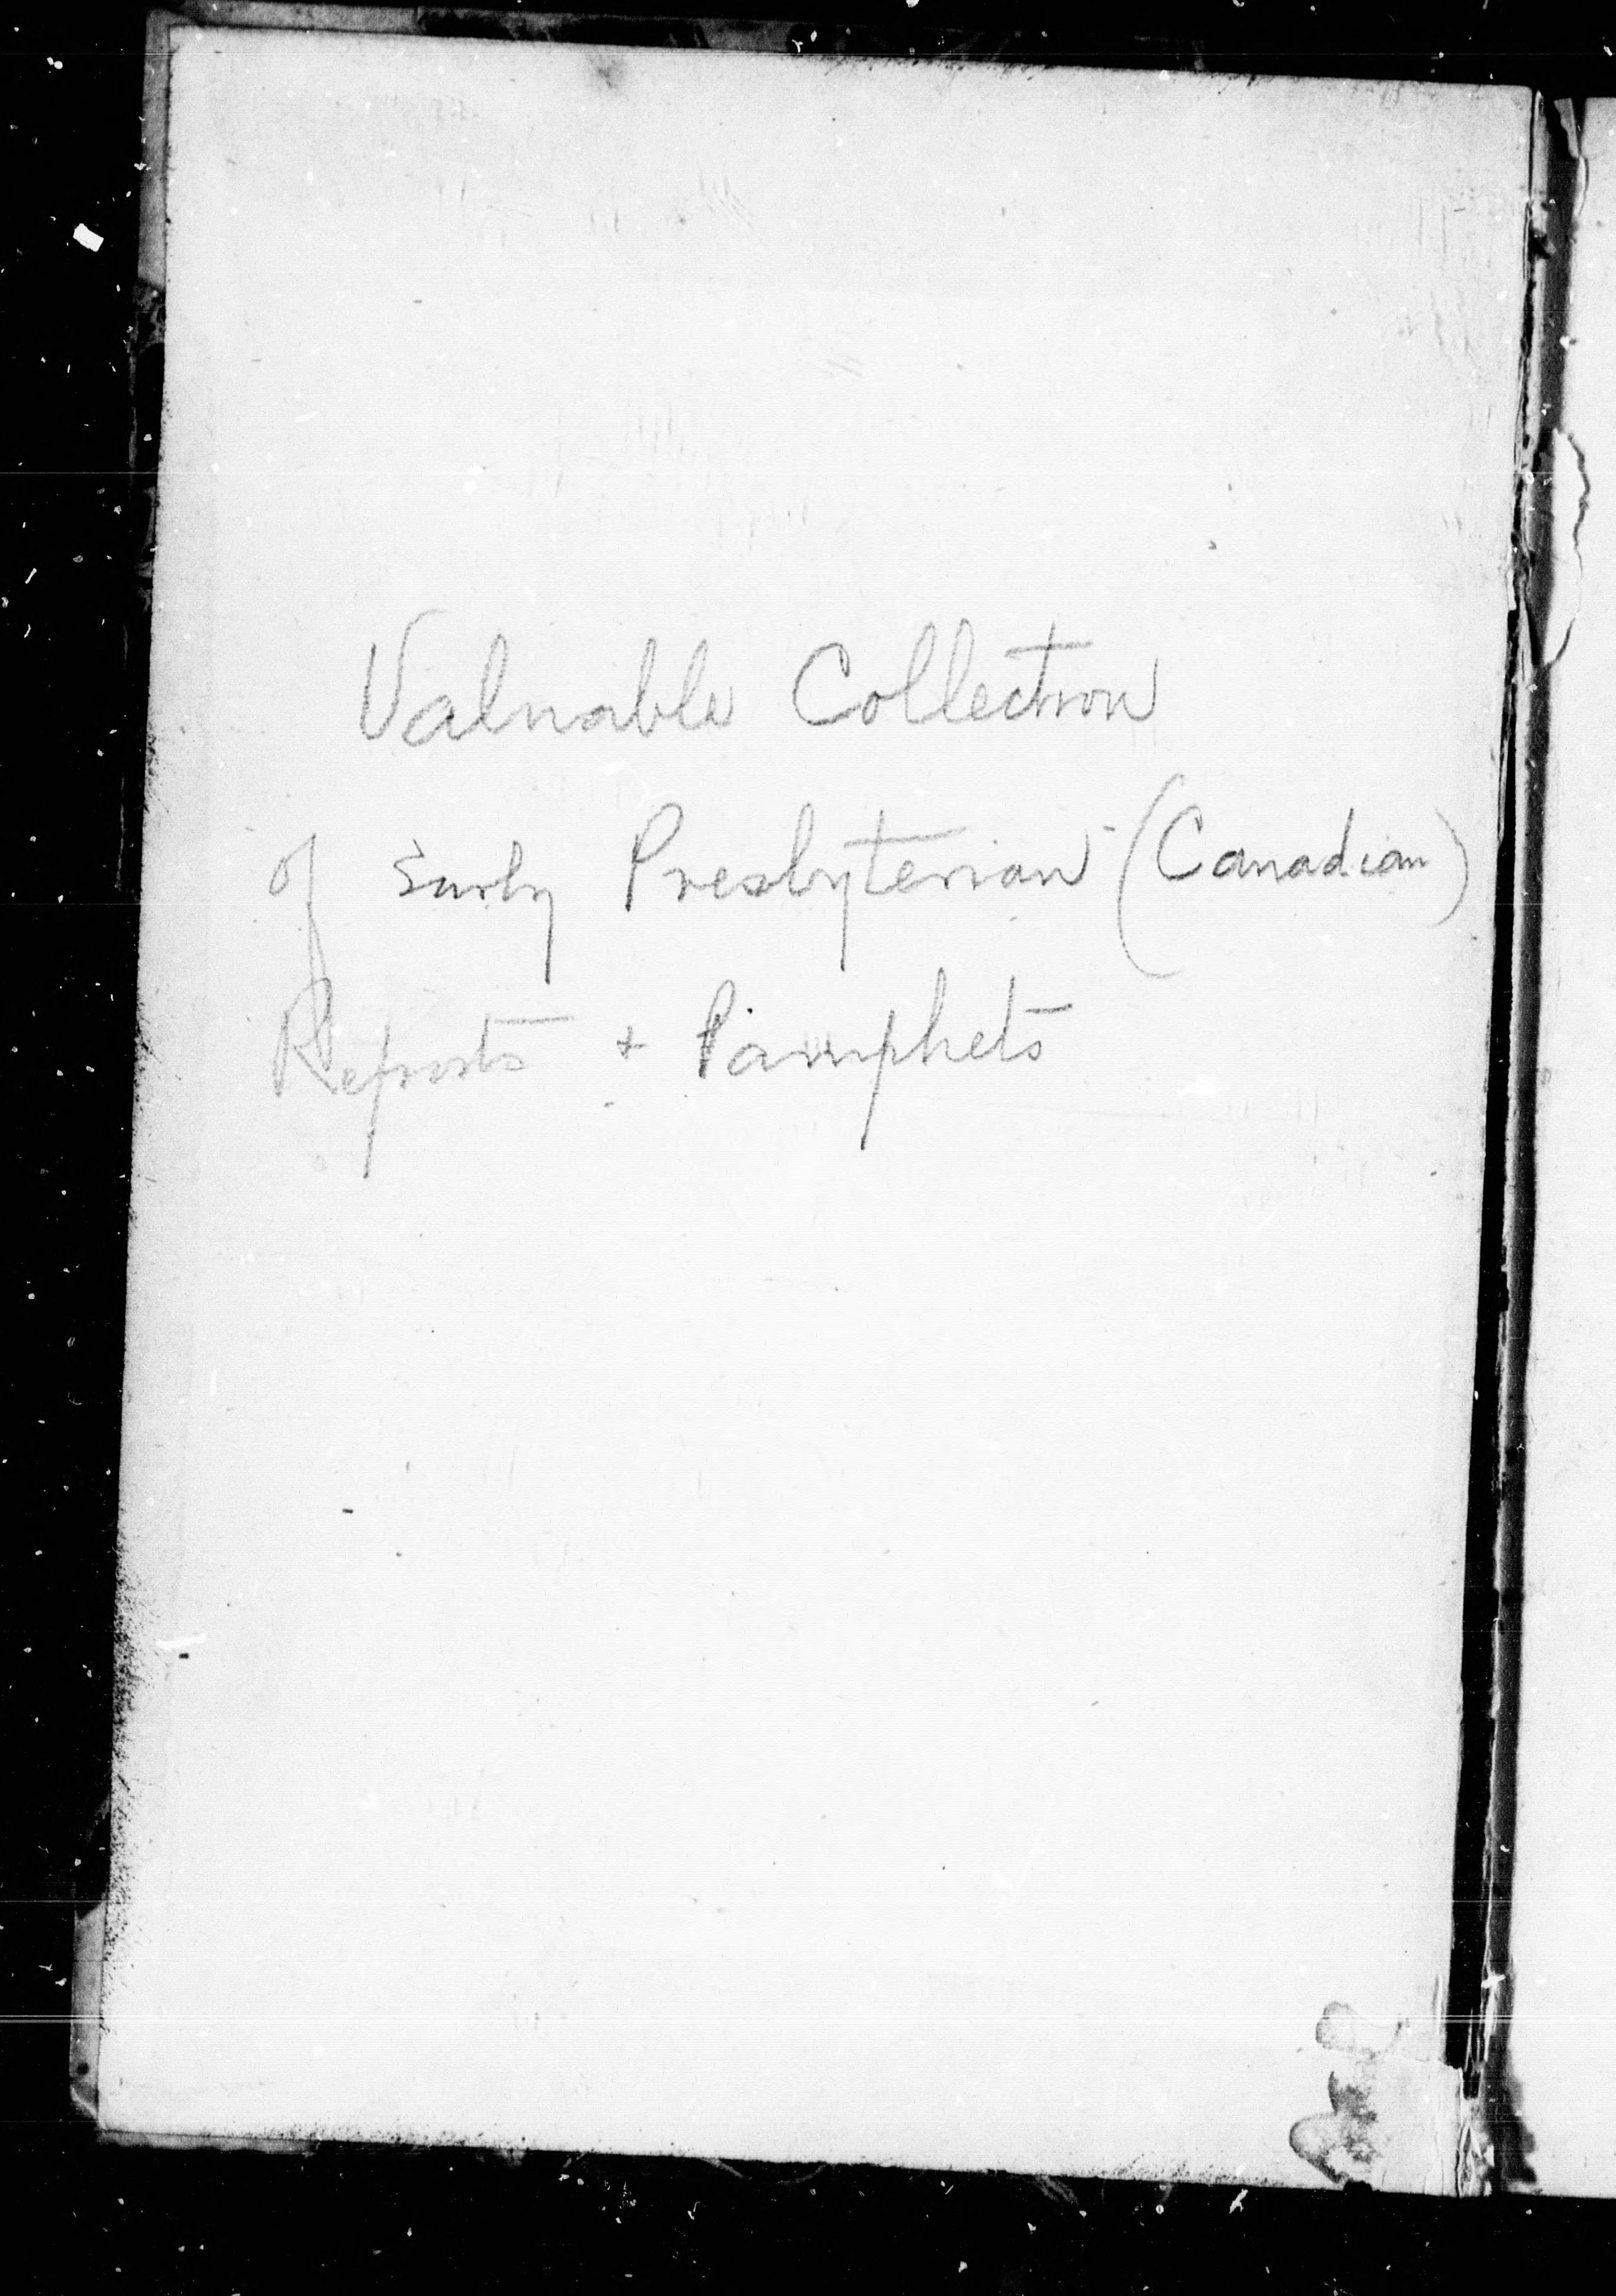 Valuable Collection
of Early Presbyterian (Canadian)
Reports + Pamphets